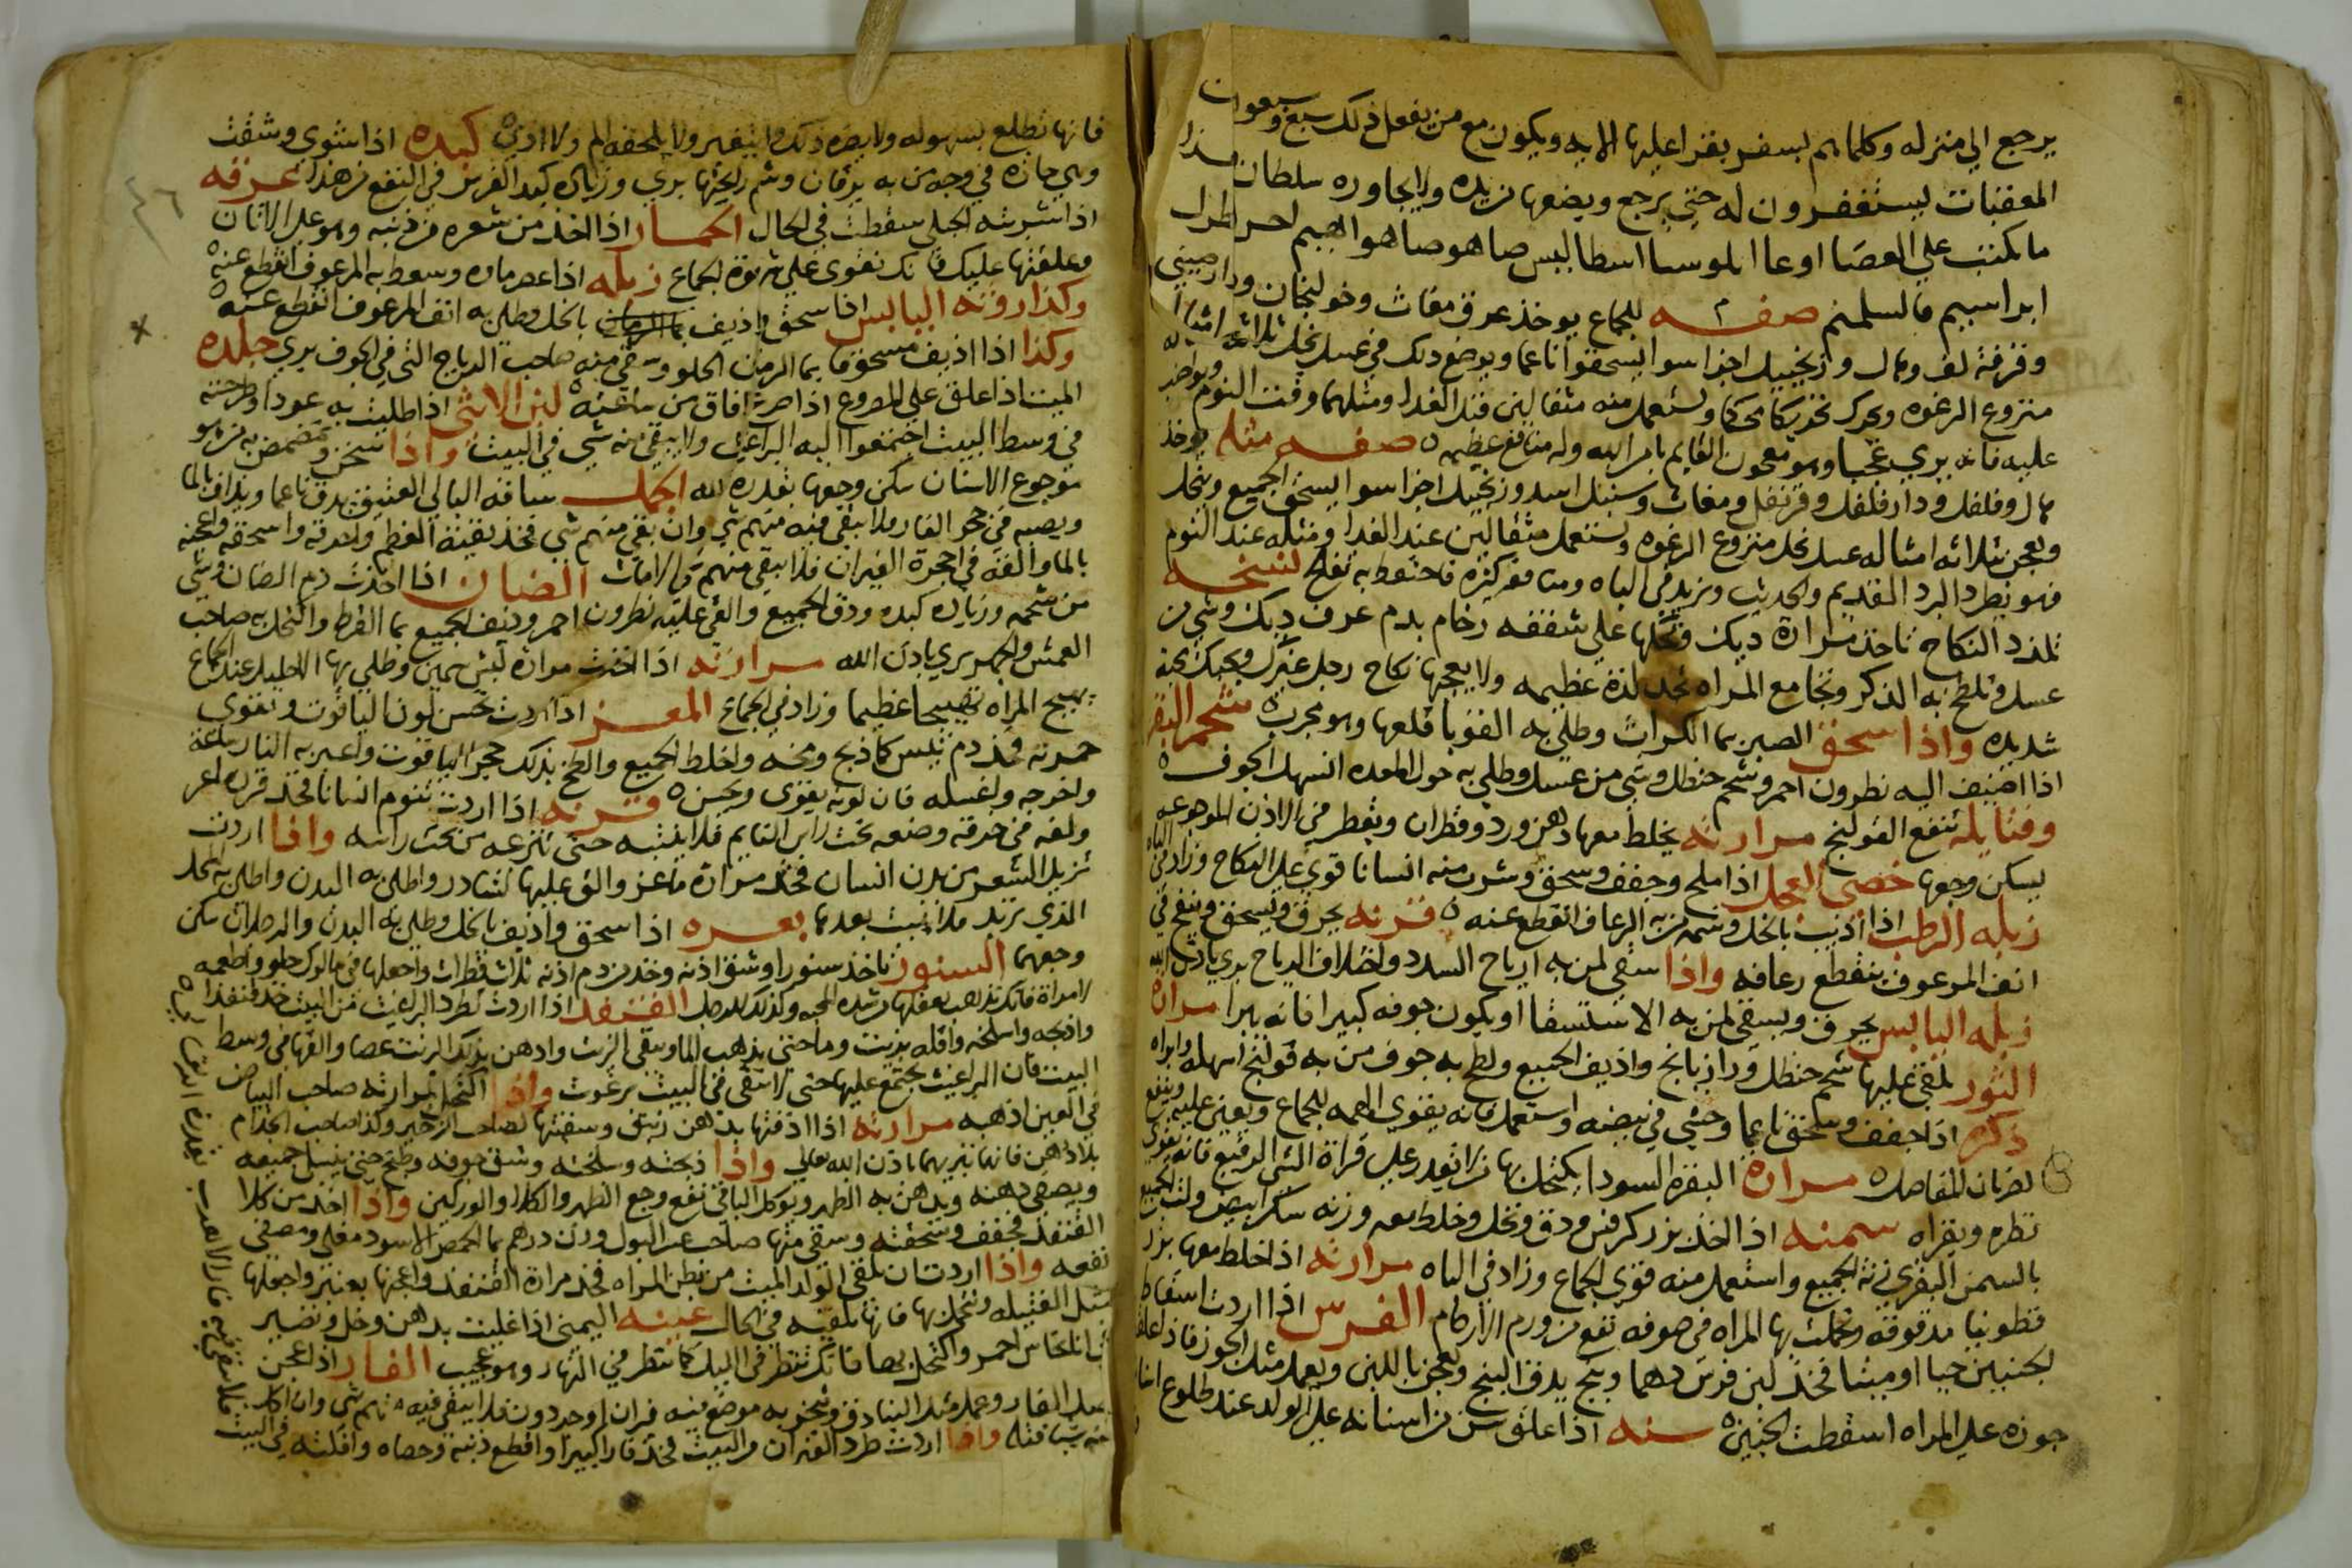 يرجع الي منزله وكلما هم بسفر يقرا عليها الايه ويكون مع من يفعل ذلك سبع وسبعون
المعقبات يستغفرون له حتي يرجع ويضعها من يده ولا يجاوره سلطان
ما يكتب علي العصا
ابراسيم فالسلمنم صفه للجماع يوخذ عرق مغاث وخولنجان ودار صيني
وقرفة لف وهال وزنجبيل اجزا سوا يسحقوا ناعما ويوضع ذلك في عسل نحل ثلاثة امثاله
منزوع الرغوه ويحرك تحريكا محكما ويستعمل منه مثقالين عند الغدا ومثلهما وقت النوم
عليه فانه يري عجبا وهو معجون القايم بامر الله وله منافع عظيمه صفه مثله يوخذ
هال وفلفل ودار فلفل وقرنفل ومغاث وسنبل اسد وزنجبيل اجزا سوا يسحق الجميع وينخل
ويعجن بثلاثه امثاله عسل نحل منزوع الرغوه ويستعمل مثقالين عند الغدا ومثله عند النوم
فهو يطرد البرد القديم والحديث ويزيد في الباه ومنافعه كثيره فاحتفظ به تفلح نسخه
تلذذ النكاح تاخذ مرارة ديك وتحكها علي شقفه رخام بدم عرف ديك وشي من
عسل وتلطخ به الذكر وتجامع المراه تجد لذة عظيمه ولا يعجبها نكاح رجل غيرك وتحبك محبة
شديده واذا سحق الصبر بما الكراث وطلي به القوبا قلعها وهو مجرب شحم البقر
اذا اضيف اليه نطرون احمر وشحم حنظل وشي من عسل وطلي به حول المعده انسهل الجوف
وفتايله تنفع القولنج مرارته يخلط معها دهن ورد وقطران ويقطر في الاذن الموجوعه
يسكن وجعها خصي العجل اذا ملح وجفف وسحق وشرب منه انسانا قوي علي النكاح وزاد في الباه
زبله الرطب اذا اذيب بالخل وشمه من به الرعاف انقطع عنه قرنه يحرق ويسحق وينفخ في
انف المرعوف ينقطع رعافه واذا سقي لمن به ارياح السدد واختلاف الرياح بري باذن الله
زبله اليابس يحرق ويسقي لمن به الاستسقا او يكون جوفه كبيرا فانه يبرا مرارة
الثور يلقي عليها شحم حنظل ورازيانج واذيف الجميع ولطخ به جوف من به قولنج اسهله وابراه
ذكره اذا جفف وسحق ناعما وحشي في بيضه واستعمل فانه يقوي الهمه للجماع ويعين عليه وينفع
لضربان المفاصل مرارة البقره السودا يكتحل بها من لا يقدر علي قراة الشي الرفيع فانه يقوي
نظره ويقراه سمنه اذا اخذ بزر كرفس ودق ونخل وخلط معه وزنه سكر ابيض ولت الجميع
بالسمن البقري زنة الجميع واستعمل منه قوي الجماع وزاد في الباه مرارته اذا خلط معها بزر
قطونيا مدقوقه وتحملت بها المراه في صوفه نفع من ورم الارحام الفرس اذا اردت اسقاط
الجنين حيا او ميتا فخذ لبن فرس دهما وبنج يدق البنج ويعجن باللبن ويعمل مثل الجوز فاذا علق
جوزه علي المراه اسقطت الجنين سنه اذا علق سن من اسنانه علي الولد عند طلوع اسنانه
فانها تطلع بسهوله ولا يضره ذلك ولا يتغير ولا يلحقه الم ولا اذي كبده اذا شوي وشقت
وهي حاره في وجه من به يرقان وشم رايحتها بري وزيادة كبد الفرس في النفع من هذا عرقه
اذا شربته الحبلي سقطت في الحال الحمار اذا اخذ من شعره من ذنبه وهو علي الاتان
وعلقتها عليك فانك تقوي علي شهوة الجماع زبله اذا عصر ماوه وسعط به المرعوف انقطع عنه
وكذا روثه اليابس اذا سحق واذيف بالخل وطلي به انف المرعوف انقطع عنه
وكذا اذا اذيف مسحوقا بما الرمان الحلو وسقي منه صاحب الرياح التي في الجوف بري جلده
الميت اذا علق علي المصروع اذا صرع افاق من ساعته لبن الانثي اذا طليت به عودا وطرحته
في وسط البيت اجتمعوا اليه البراغيث ولا يبقي منه شي في البيت واذا سخن وتمضمض به من هو
موجوع الاسنان سكن وجعها بقدرة الله الجمل ساقه البالي العتيق يدق ناعما ويذاف بالما
ويصبه في جحر الفار فلا يبقي فيه منهم شي وان بقي منهم شي فخذ بقية العظم ولدقه واسحقه واعجنه
بالما والقه في احجرة الفيران فلا يبقي منهم الا مات الضان اذا اخذت دم الضان وشي
من شحمه وزيادة كبده ودق الجميع والقي عليه نطرون احمر وذيف الجميع بما القرظ واكتحل به صاحب
العمش والجهر بري باذن الله مرارته اذا اخذت مرارة كبش سمين وطلي بها الاحليل عند الجماع
يهيج المراه تهييجا عظيما وزاد في الجماع المعز اذا اردت تحسن لون الياقوت وتقوي
حمرته فخذ دم تيس كما ذبح ومخه واخلط الجميع والطخ بذلك حجر الياقوت واعبر به النار ساعة
واخرجه واغسله فان لونه يقوي ويحسن قرنه اذا اردت تنوم انسانا فخذ قرن ماعز
ولفه في خرقه وضعه تحت راس النايم فلا ينتبه حتي تنزعه من تحت راسه واذا اردت
تزيل الشعر من بدن انسان فخذ مرارة ماعز والق عليها نشادر واطلي به البدن واطلي به المحل
الذي تريد فلا ينبت بعدها بعره اذا سحق واذيف بالخل وطلي به البدن والدملان سكن
وجعهما السنور تاخذ سنورا وشق اذنه وخذ من دم اذنه ثلاث قطرات واجعلها في ماكول حلو واطعمه
لامراة فانك تذهب بعقلها من شده المحبه وكذلك للرجل القنفد اذا اردت تطرد البراغيث من البيت خذ قنفدا
واذبحه واسلخه واقله بزيت وما حتي يذهب الما ويبقي الزيت وادهن بذلك الزيت عصا والقها في وسط
البيت فان البراغيث يجتمع عليها حتي لا تبقي في البيت برغوث واذا اكتحل بمرارته صاحب البياض
في العين اذهبه مرارته اذا ادفتها بدهن زنبق وسقيتها لصاحب الزحير وكذا صاحب الجذام
بلا دهن فانها تبريهما باذن الله تعالي واذا ذبحته وسلخته وشق جوفه وطبخ حتي ينسل جميعه
ويصفي دهنه ويدهن به الظهر ويوكل الباقي نفع وجع الظهر والكلا والوركين واذا اخذ من كلا
القنفد فجفف وسحقته وسقي منها صاحب عسر البول وزن درهم بما الحمص الاسود مغلي ومصفي
نفعه واذا اردت ان تلقي الولد الميت من بطن المراه فخذ مرارة القنفد واعجنها بعنبر واجعلها
مثل الفتيله وتتحمل بها فانها تلقيه في الحال عينه اليمني اذا غليت بدهن وخل وتصير
في انا نحاس احمر واكتحل بها فانك تنظر في الليل كما تنظر في النهار وهو عجيب الفار اذا عجن
بعسل الفار وعمل مثل البنادق وتبخر به موضع فيه فيران او جردون فلا يبقي فيه منهم شي وان اكل
منه شيا قتله واذا اردت طرد الفيران من البيت فخذ فارا كبيرا واقطع ذنبه وخصاه وافلته في البيت
فلا يبقي فيه فارا الا هرب بقدرة الله
٤٦